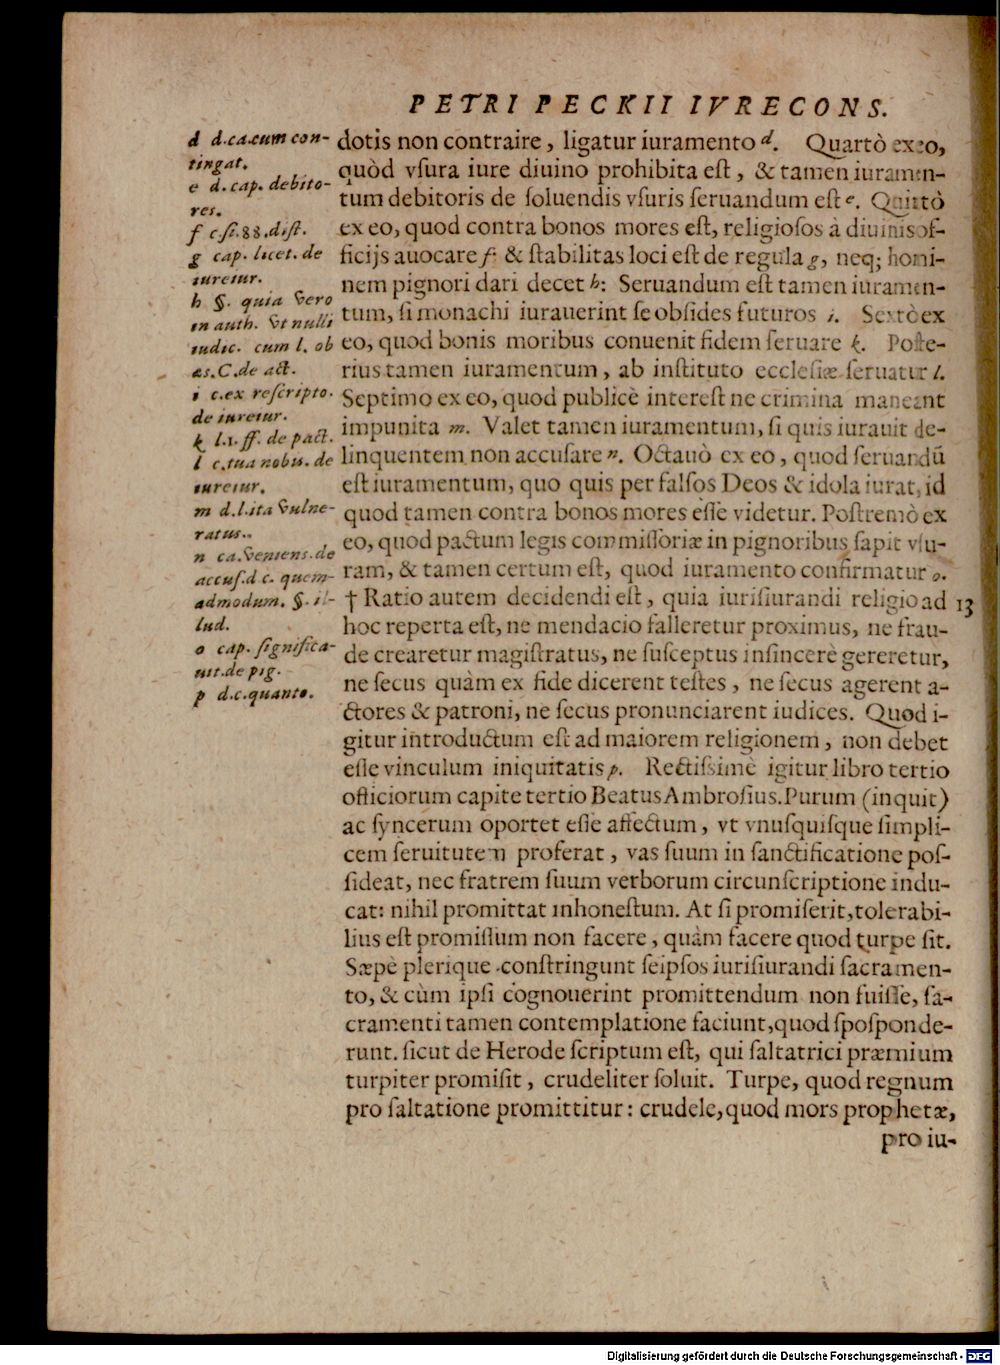 PETRI PECKII IVRECONS.
d d.ca.cum con-
tingat.
e d. cap. debito-
res.
f c.si.88.dist.
g cap. licet. de
iureiur.
h §. quia vero
in auth. vt nulli
iudic. cum l. ob
as.C.de act.
i c.ex rescripto.
de iureiur.
k l.1. ff. de pact.
l c.tua nobis. de
iureiur.
m d.l.ita vulne-
ratus.
n ca.veniens.de
accus.d c. quem-
admodum. §. il-
lud.
o cap. significa-
uit.de pig.
p d.c.quanto.
dotis non contraire, ligatur iuramento d. Quartò ex eo,
quòd vſura iure diuino prohibita eſt, & tamen iuramen-
tum debitoris de ſoluendis vſuris ſeruandum eſt e. Quintò
ex eo, quod contra bonos mores eſt, religioſos à diuinis of-
ficijs auocare f: & ſtabilitas loci eſt de regula g, neq; homi-
nem pignori dari decet h: Seruandum eſt tamen iuramen-
tum, ſi monachi iurauerint ſe obſides futuros i. Sextò ex
eo, quod bonis moribus conuenit fidem ſeruare k. Poſte-
rius tamen iuramentum, ab inſtituto eccleſiæ ſeruatur l.
Septimo ex eo, quod publicè intereſt ne crimina maneant
impunita m. Valet tamen iuramentum, ſi quis iurauit de-
linquentem non accuſare n. Octauò ex eo, quod ſeruandū
eſt iuramentum, quo quis per falſos Deos & idola iurat, id
quod tamen contra bonos mores eſſe videtur. Poſtremò ex
eo, quod pactum legis commiſſoriæ in pignoribus ſapit vſu-
ram, & tamen certum eſt, quod iuramento confirmatur o.
† Ratio autem decidendi eſt, quia iuriſiurandi religio ad 13
hoc reperta eſt, ne mendacio falleretur proximus, ne frau-
de crearetur magiſtratus, ne ſuſceptus inſincerè gereretur,
ne ſecus quàm ex fide dicerent teſtes, ne ſecus agerent a-
ctores & patroni, ne ſecus pronunciarent iudices. Quod i-
gitur introductum eſt ad maiorem religionem, non debet
eſſe vinculum iniquitatis p. Rectiſsimè igitur libro tertio
officiorum capite tertio Beatus Ambroſius. Purum (inquit)
ac ſyncerum oportet eſſe affectum, vt vnuſquiſque ſimpli-
cem ſeruitutem proferat, vas ſuum in ſanctificatione poſ-
ſideat, nec fratrem ſuum verborum circunſcriptione indu-
cat: nihil promittat inhoneſtum. At ſi promiſerit, tolerabi-
lius eſt promiſſum non facere, quàm facere quod turpe ſit.
Sæpè plerique conſtringunt ſeipſos iuriſiurandi ſacramen-
to, & cùm ipſi cognouerint promittendum non fuiſſe, ſa-
cramenti tamen contemplatione faciunt, quod ſpoſponde-
runt. ſicut de Herode ſcriptum eſt, qui ſaltatrici præmium
turpiter promiſit, crudeliter ſoluit. Turpe, quod regnum
pro ſaltatione promittitur: crudele, quod mors prophetæ,
pro iu-
Digitalisierung gefördert durch die Deutsche Forschungsgemeinschaft - DFG